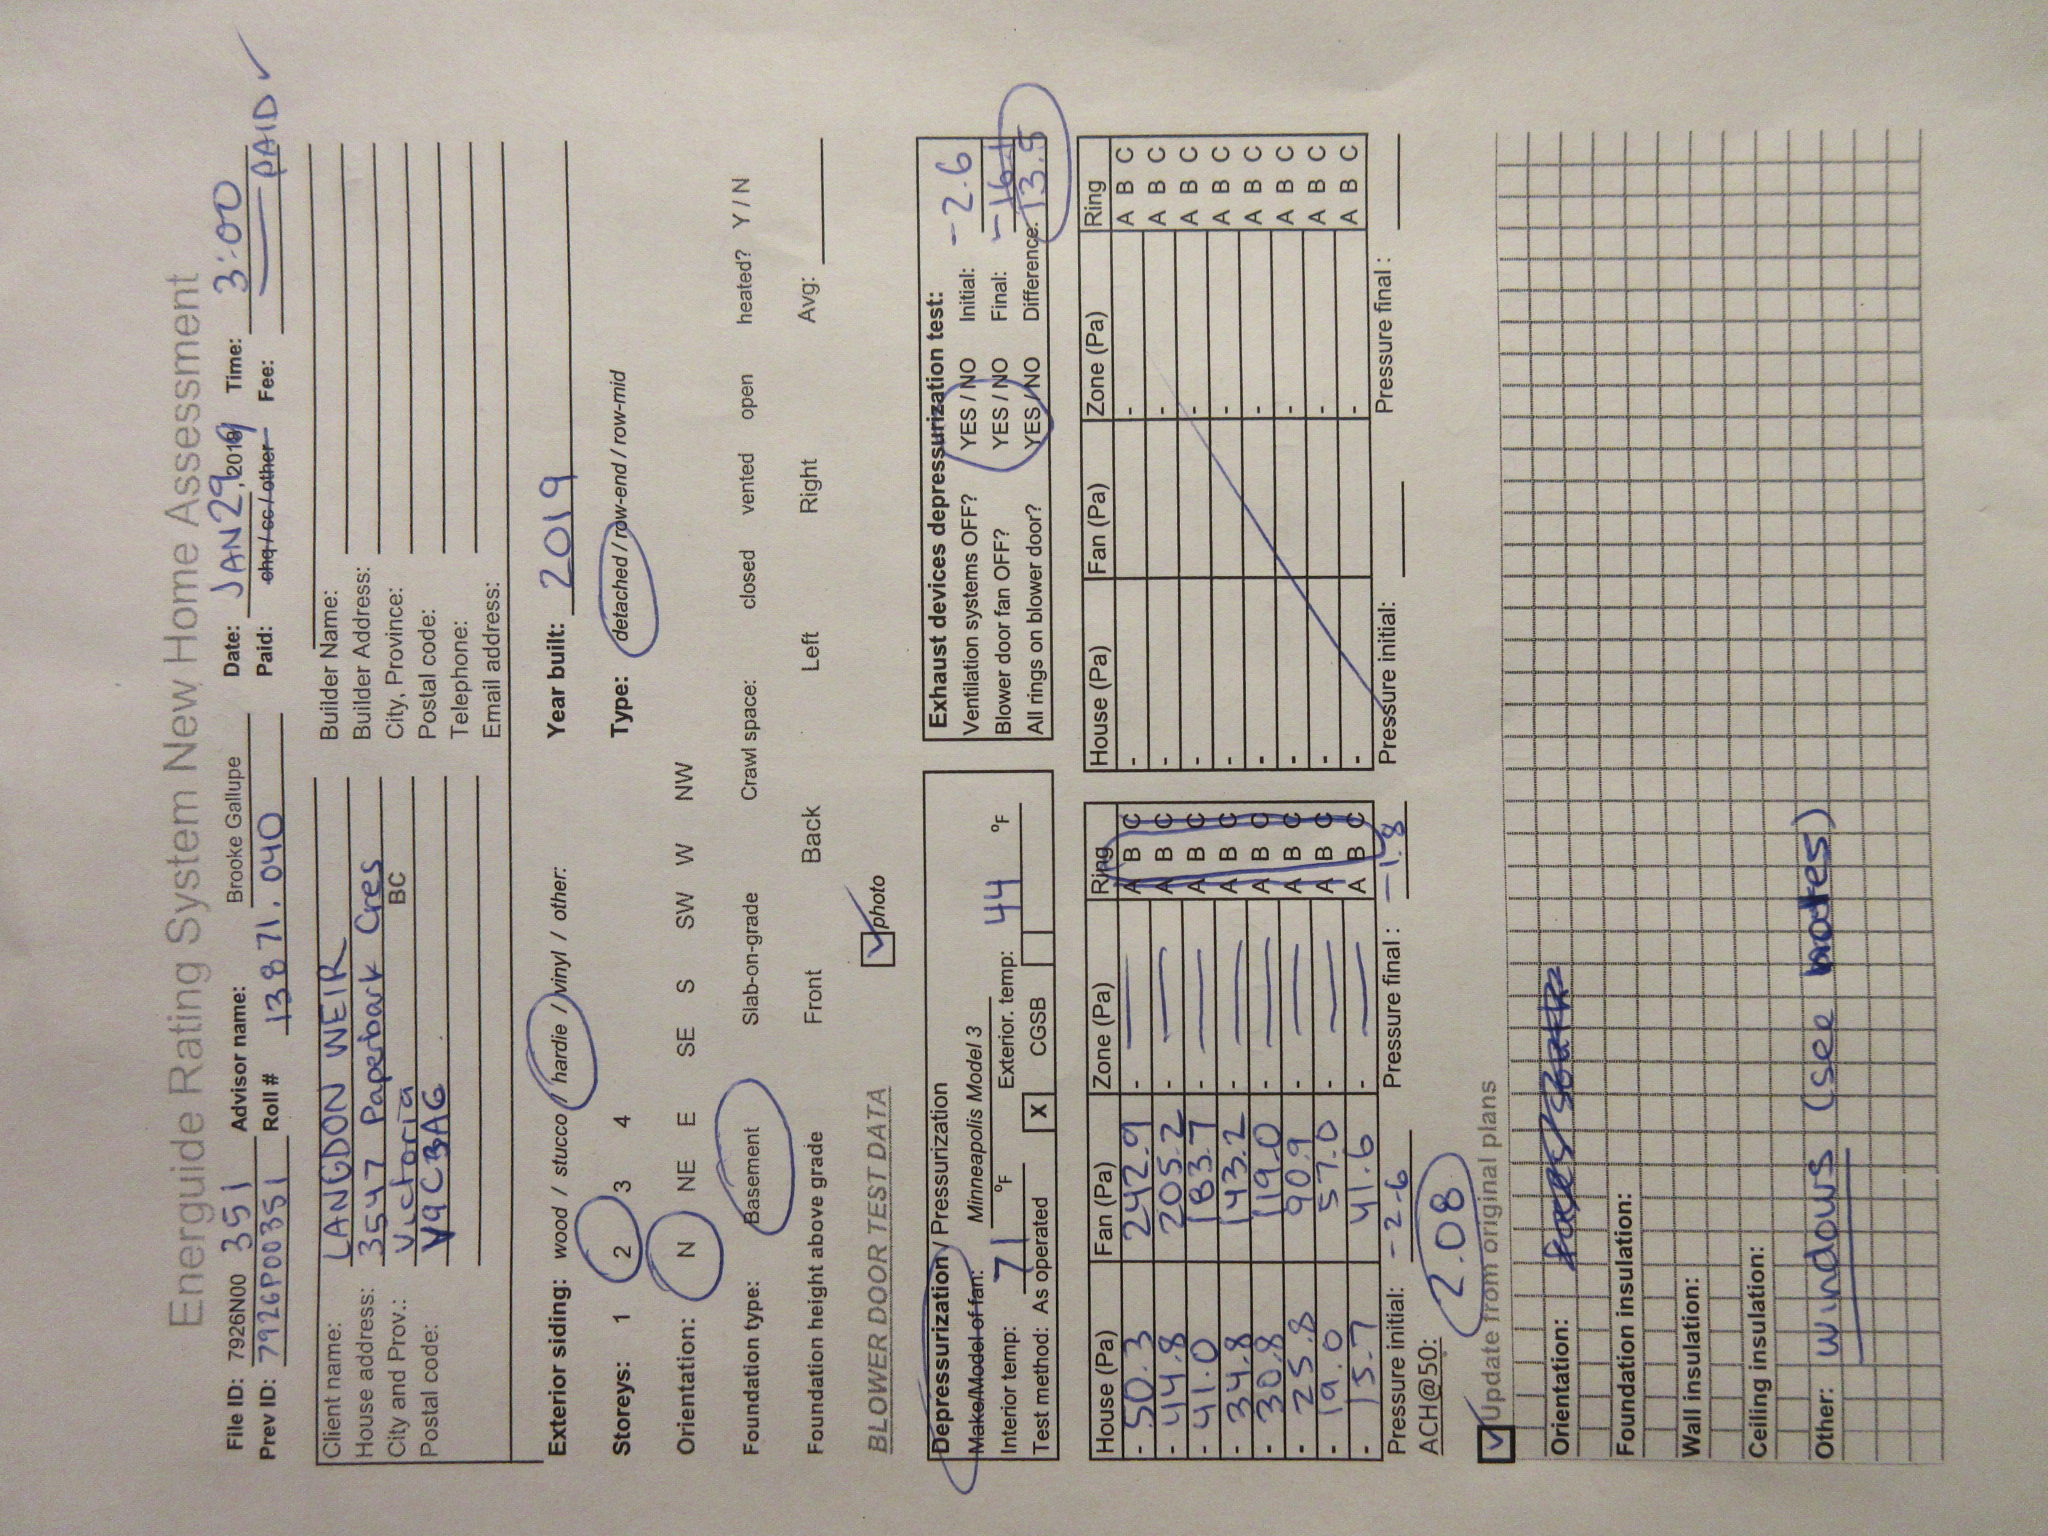 Energuide Rating System New Home Assessment
File ID: 7926N00 351 Advisor name: Brooke Gallupe Date: JAN 29, 2019 Time: 3:00
Prev ID: 7926P00351 Roll # 13871.040 Paid: chq / cc / other Fee: — PAID ✓
Client name: LANGDON WEIR Builder Name:
House address: 3547 Paperbark Cres Builder Address:
City and Prov.: Victoria BC City, Province:
Postal code: V9C3A6 Postal code:
Telephone:
Email address:
Exterior siding: wood / stucco / hardie / vinyl / other: Year built: 2019
Storeys: 1 2 3 4 Type: detached / row-end / row-mid
Orientation: N NE E SE S SW W NW
Foundation type: Basement Slab-on-grade Crawl space: closed vented open heated? Y / N
Foundation height above grade Front Back Left Right Avg:
BLOWER DOOR TEST DATA ✓ photo
Depressurization / Pressurization Exhaust devices depressurization test:
Make/Model of fan: Minneapolis Model 3 Ventilation systems OFF? YES / NO Initial: -2.6
Interior temp: 71 °F Exterior. temp: 44 °F Blower door fan OFF? YES / NO Final: -16.1
Test method: As operated X CGSB All rings on blower door? YES / NO Difference: 13.5
House (Pa) Fan (Pa) Zone (Pa) Ring House (Pa) Fan (Pa) Zone (Pa) Ring
- 50.3 242.9 - — A B C - - A B C
- 44.8 205.2 - — A B C - - A B C
- 41.0 183.7 - — A B C - - A B C
- 34.8 143.2 - — A B C - - A B C
- 30.8 119.0 - — A B C - - A B C
- 25.8 90.9 - — A B C - - A B C
- 19.0 57.0 - — A B C - - A B C
- 15.7 41.6 - — A B C - - A B C
Pressure initial: -2.6 Pressure final : -1.8 Pressure initial: Pressure final :
ACH@50: 2.08
✓ Update from original plans
Orientation: faces South
Foundation insulation:
Wall insulation:
Ceiling insulation:
Other: windows (see notes)